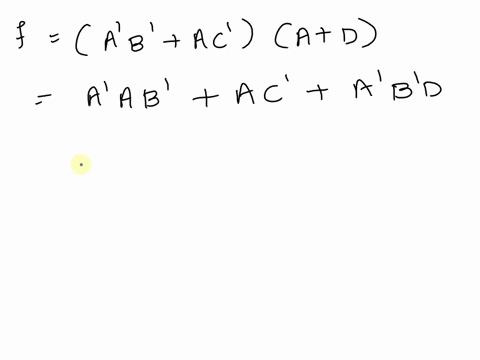 f = (A'B' + AC') (A+D)
= A'AB' + AC' + A'B'D